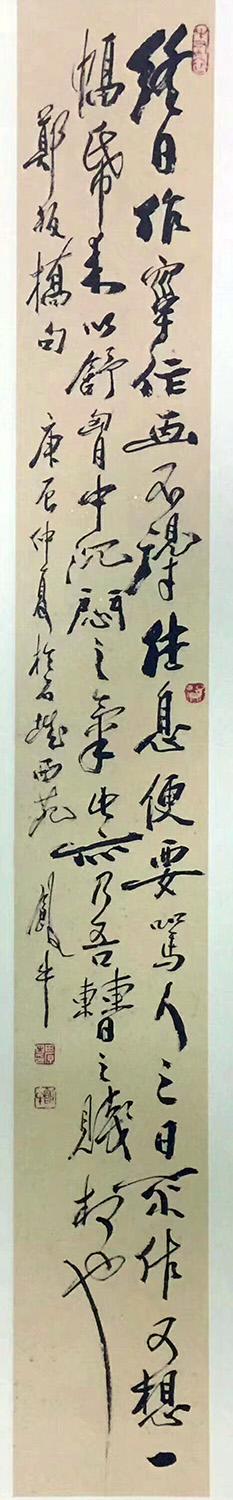 終日作字作画不得休息便要罵人三日不作又想一
幅帋来以舒胷中沉悶之氣此亦乃吾曹之賤相也
鄭板橋句 庚辰仲夏於石城西苑